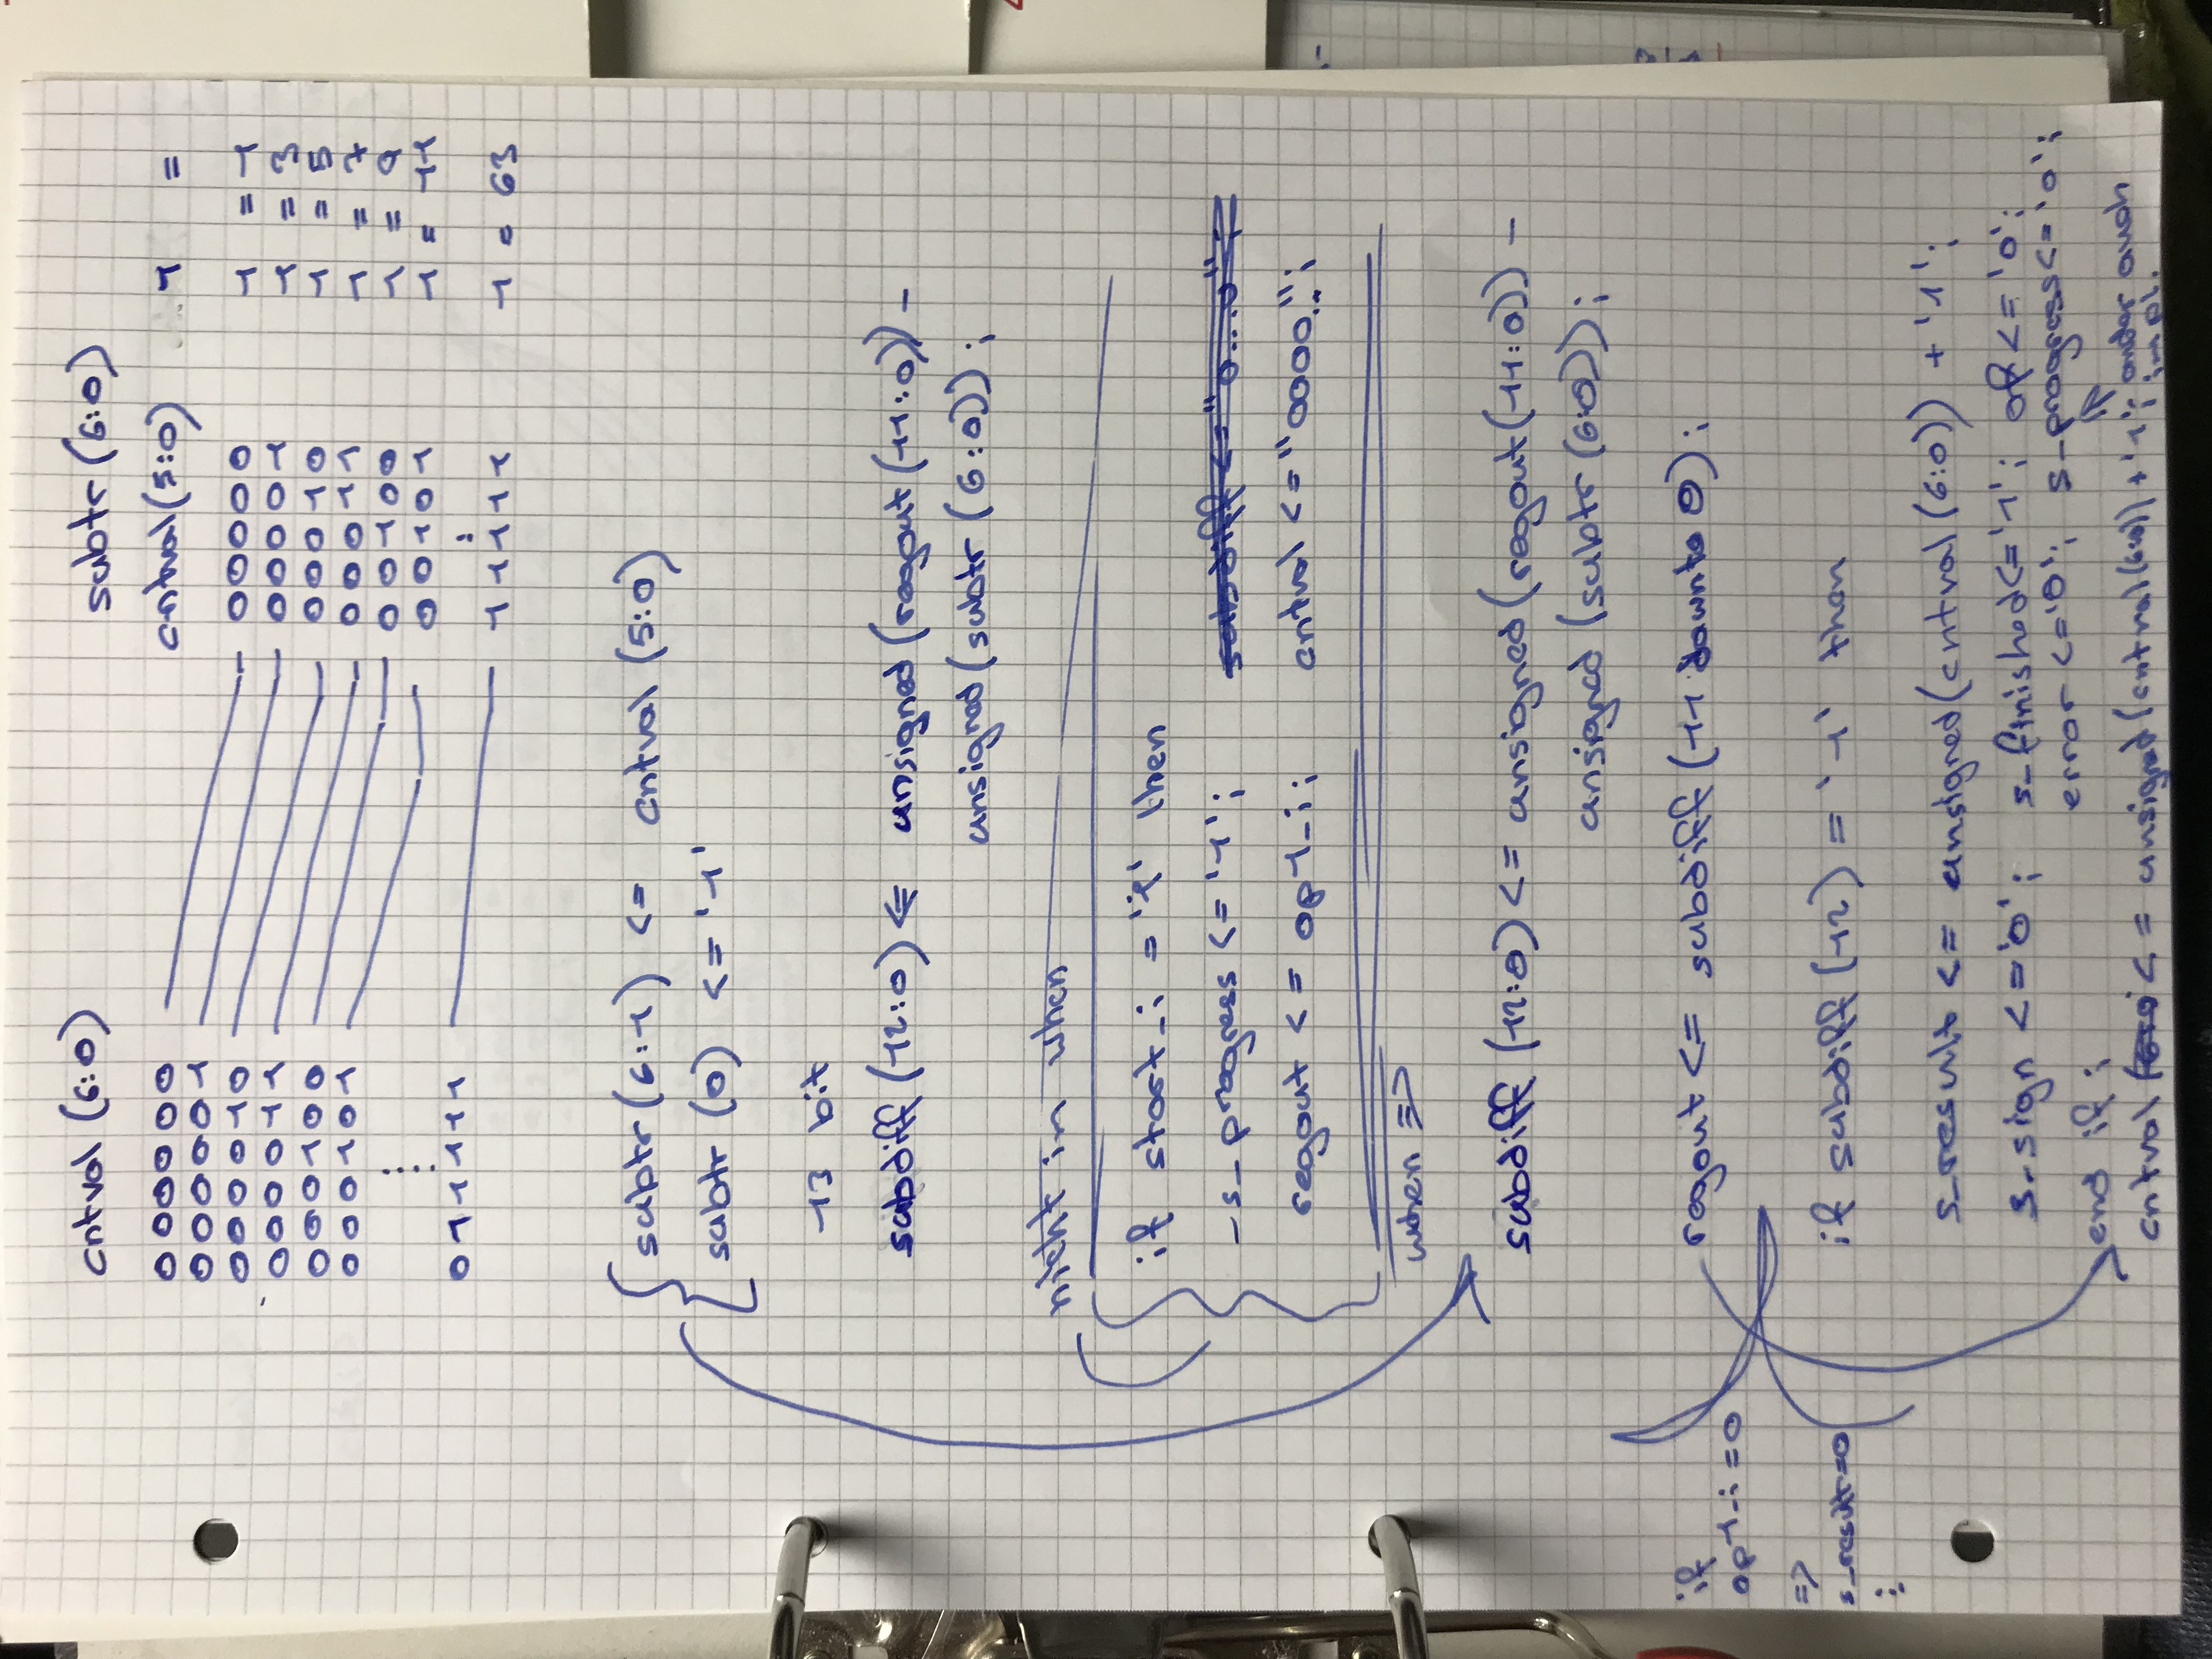 cntval (6:0) subtr (6:0)
000000 cntval(5:0) 1 =
000001
000010 00000 1 = 1
000011 00001 1 = 3
000100 00010 1 = 5
000101 00011 1 = 7
⋮ 00100 1 = 9
00101 1 = 11
011111 ⋮
11111 1 = 63
subtr(6:1) <= cntval (5:0)
subtr (0) <= '1'
13 bit
subdiff (12:0) <= unsigned(regout(11:0)) -
unsigned(subtr (6:0));
nicht in when
if start_i = '1' then
-s_progress <= '1'; subdiff <= "0...0";
regout <= op1_i; cntval <= "0000..";
when =>
subdiff (12:0) <= unsigned(regout(11:0)) -
unsigned (subtr(6:0));
if
regout <= subdiff (11 downto 0);
op1_i = 0
=>
s_result=0
if subdiff (12) = '1' then
:
s_result <= unsigned(cntval(6:0)) + '1';
s_sign <= '0'; s_finished<='1'; of <= '0';
error <= '0'; s_progress<= '0';
end if;
cntval <= unsigned(cntval(6:0)) + '1'; auch
impl.